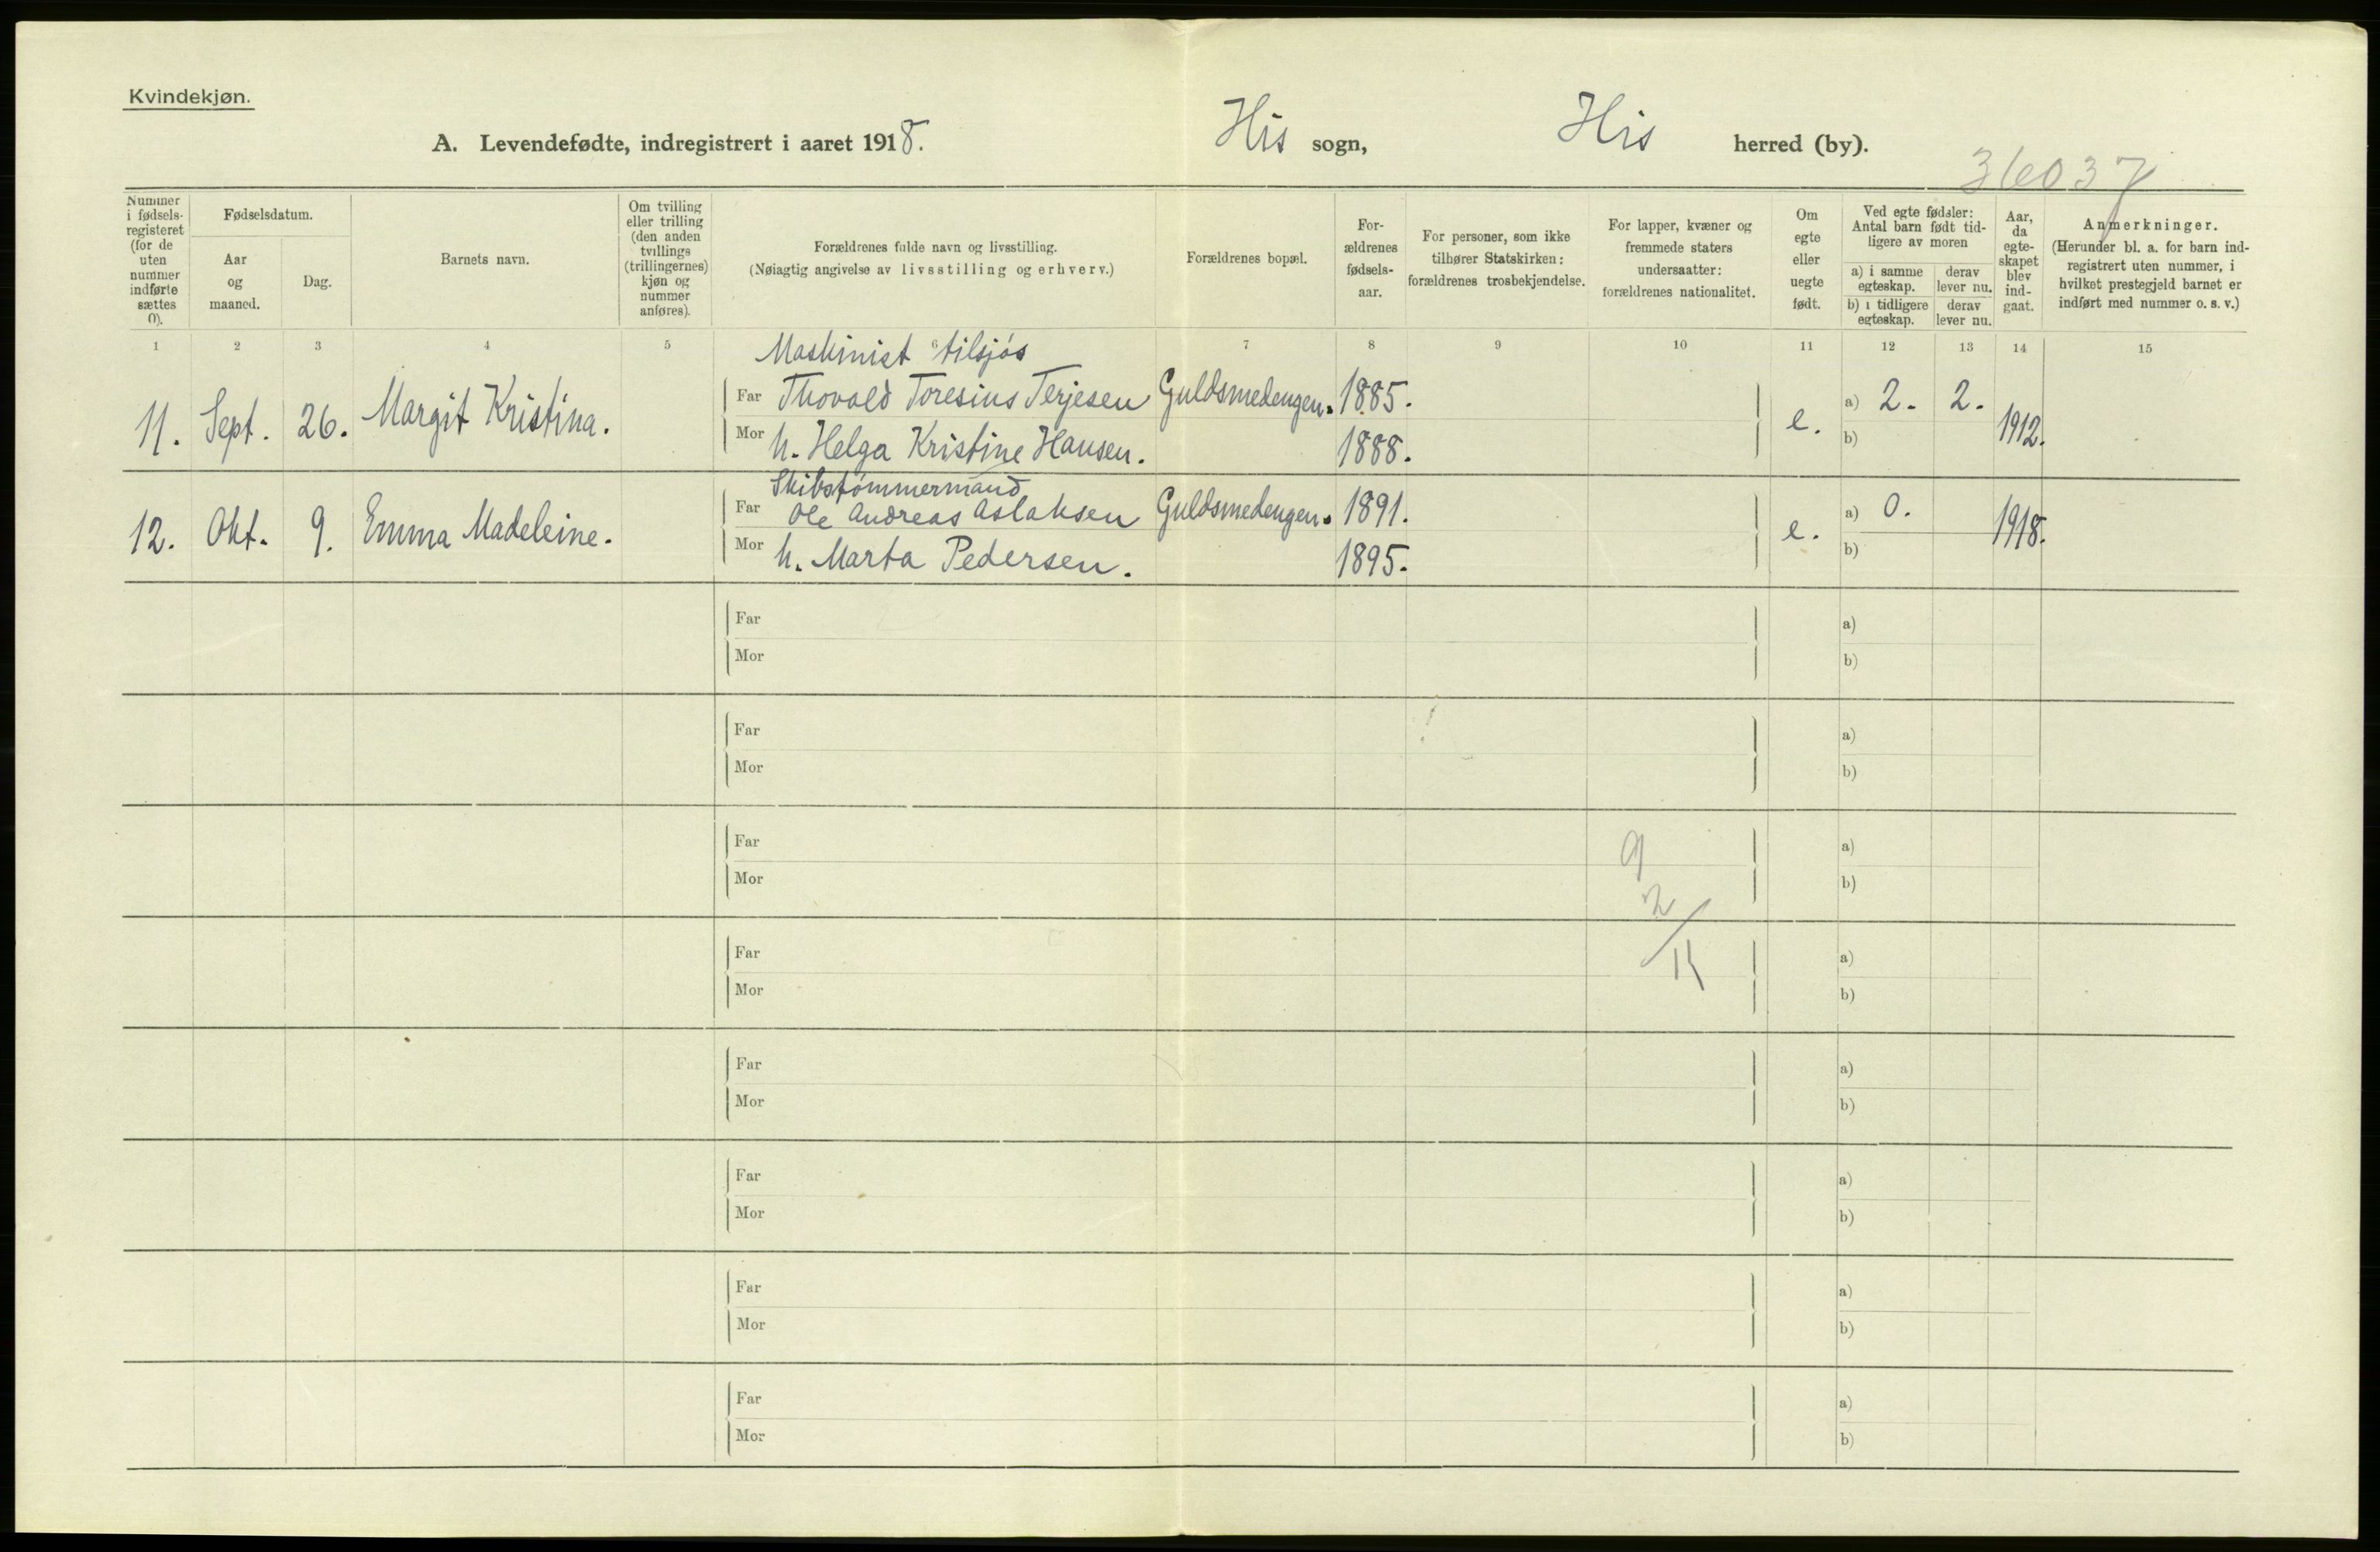 Kvindekjøn.
A. Levendefødte, indregistrert i aaret 1918. His sogn, His herred (by).
36037
Nummer i fødsels-registeret (for de uten nummer indførte sættes 0).
Fødselsdatum.
Aar og maaned.
Dag.
Barnets navn.
Om tvilling eller trilling (den anden tvillings (trillingernes) kjøn og nummer anføres).
Forældrenes fulde navn og livsstilling.
(Nøiagtig angivelse av livsstilling og erhverv.)
Forældrenes bopæl.
For-ældrenes fødsels-aar.
For personer, som ikke tilhører Statskirken: forældrenes trosbekjendelse.
For lapper, kvæner og fremmede staters undersaatter: forældrenes nationalitet.
Om egte eller uegte født.
Ved egte fødsler: Antal barn født tid-ligere av moren
a) i samme egteskap.
derav lever nu.
b) i tidligere egteskap.
derav lever nu.
Aar, da egte-skapet blev ind-gaat.
Anmerkninger.
(Herunder bl. a. for barn ind-registrert uten nummer, i hvilket prestegjeld barnet er indført med nummer o. s. v.)
1 2 3 4 5 6 7 8 9 10 11 12 13 14 15
Maskinist tilsjós
11. Sept. 26. Margit Kristina. Far Thovald Toresius Terjesen Guldsmedengen. 1885. e. a) 2. 2. 1912.
Mor h. Helga Kristine Hansen. 1888. b)
Skibstømmermand
12. Okt. 9. Emma Madeleine. Far Ole Andreas Aslaksen Guldsmedengen. 1891. e. a) 0. 1918.
Mor h. Marta Pedersen. 1895. b)
Far a)
Mor b)
Far a)
Mor b)
Far 9 a)
Mor b)
2
Far a)
11
Mor b)
Far a)
Mor b)
Far a)
Mor b)
Far a)
Mor b)
Far a)
Mor b)